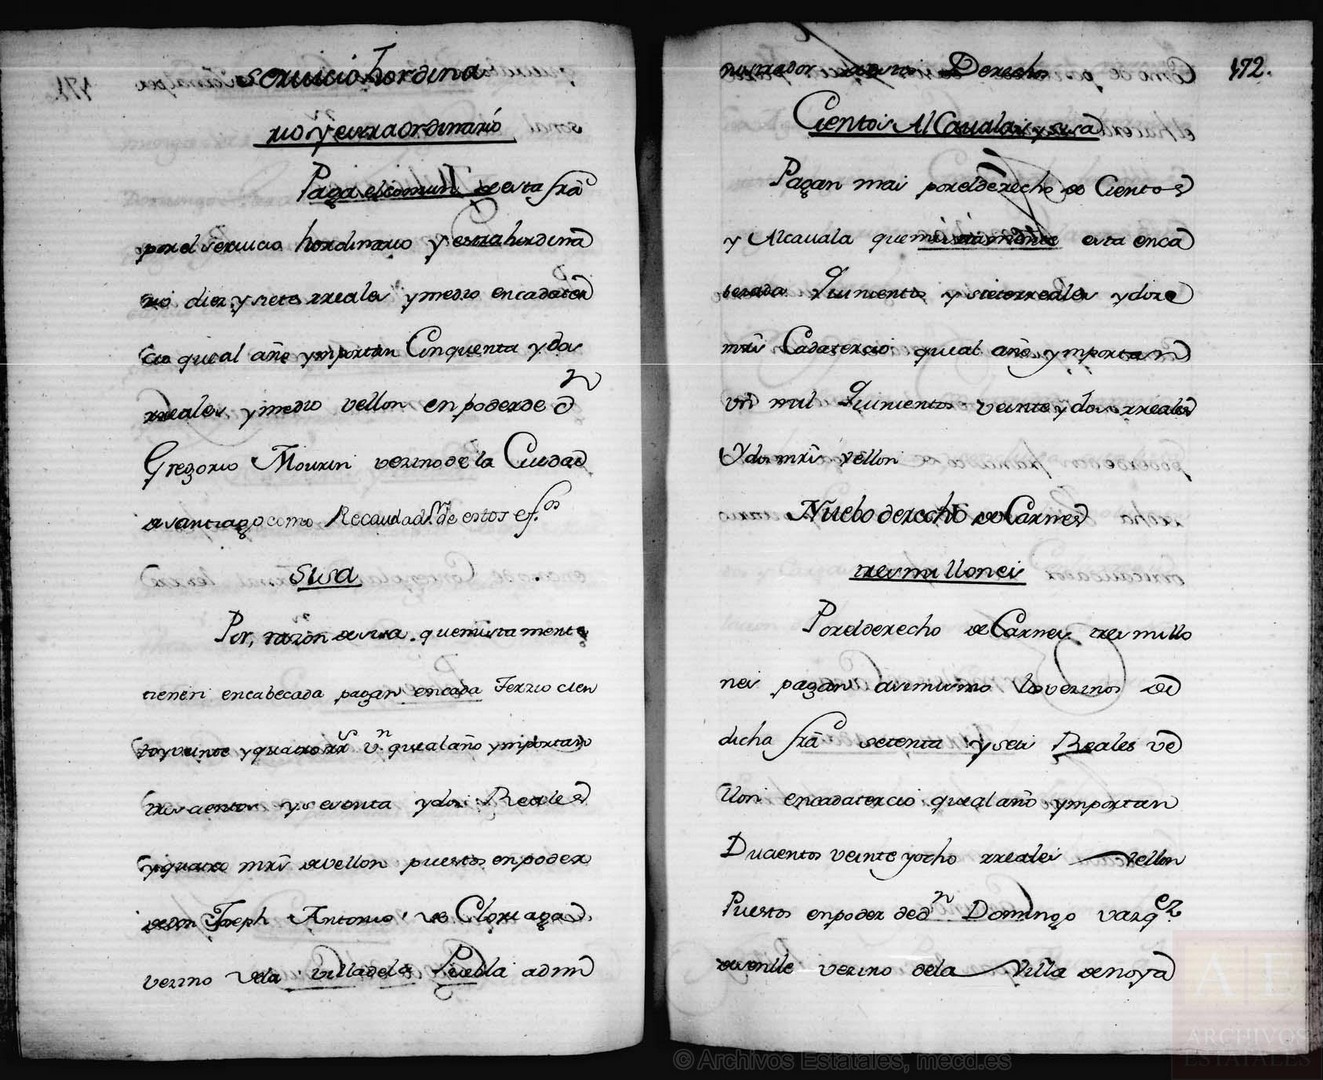 Servicio hordina
rio y extraordinario
Paga el comun de esta frã
por el Servicio hordinario y extrahordina
rio diez y siete rreales y medio en cada ter
cio que al año ymportan Cinquenta y dos
rreales y medio vellon en poder de Dn
Gregorio Mourin vezino de la Ciudad
de santiago como Recaudador de estos efos
Sisa
Por, razon de sisa. que mistamente
tienen encabezada pagan en cada Terzio cien
to y veinte y quatro rrs vn que al año ymportan
trescientos y setenta y dos Reales
y quatro mrs de vellon puestos en poder
de don Joseph Antonio de Cloriaga
vezino de la villa de la Puebla admi
172.
nistrador de este Derecho
Cientos Al Cavalas y sisa
Pagan mas por el derecho de Cientos
y Alcavala que mistamente esta enca
bezada Quinientos y siete rreales y doze
mrs Cada tercio que al año ymportan
un mil Quinientos veinte y dos rreales
Y dos mrs vellon
Nuebo derecho de Carnes
tres millones
Por el derecho de Carnes tres millo
nes pagan asimismo los vezinos de
dicha frã setenta y seis Reales ve
llon en cada tercio que al año ymportan
Ducientos veinte y ocho rreales vellon
Puestos en poder de dn Domingo vazqez
vezino de la Villa de noya
© Archivos Estatales, mecd.es
AE
ARCHIVOS
ESTATALES